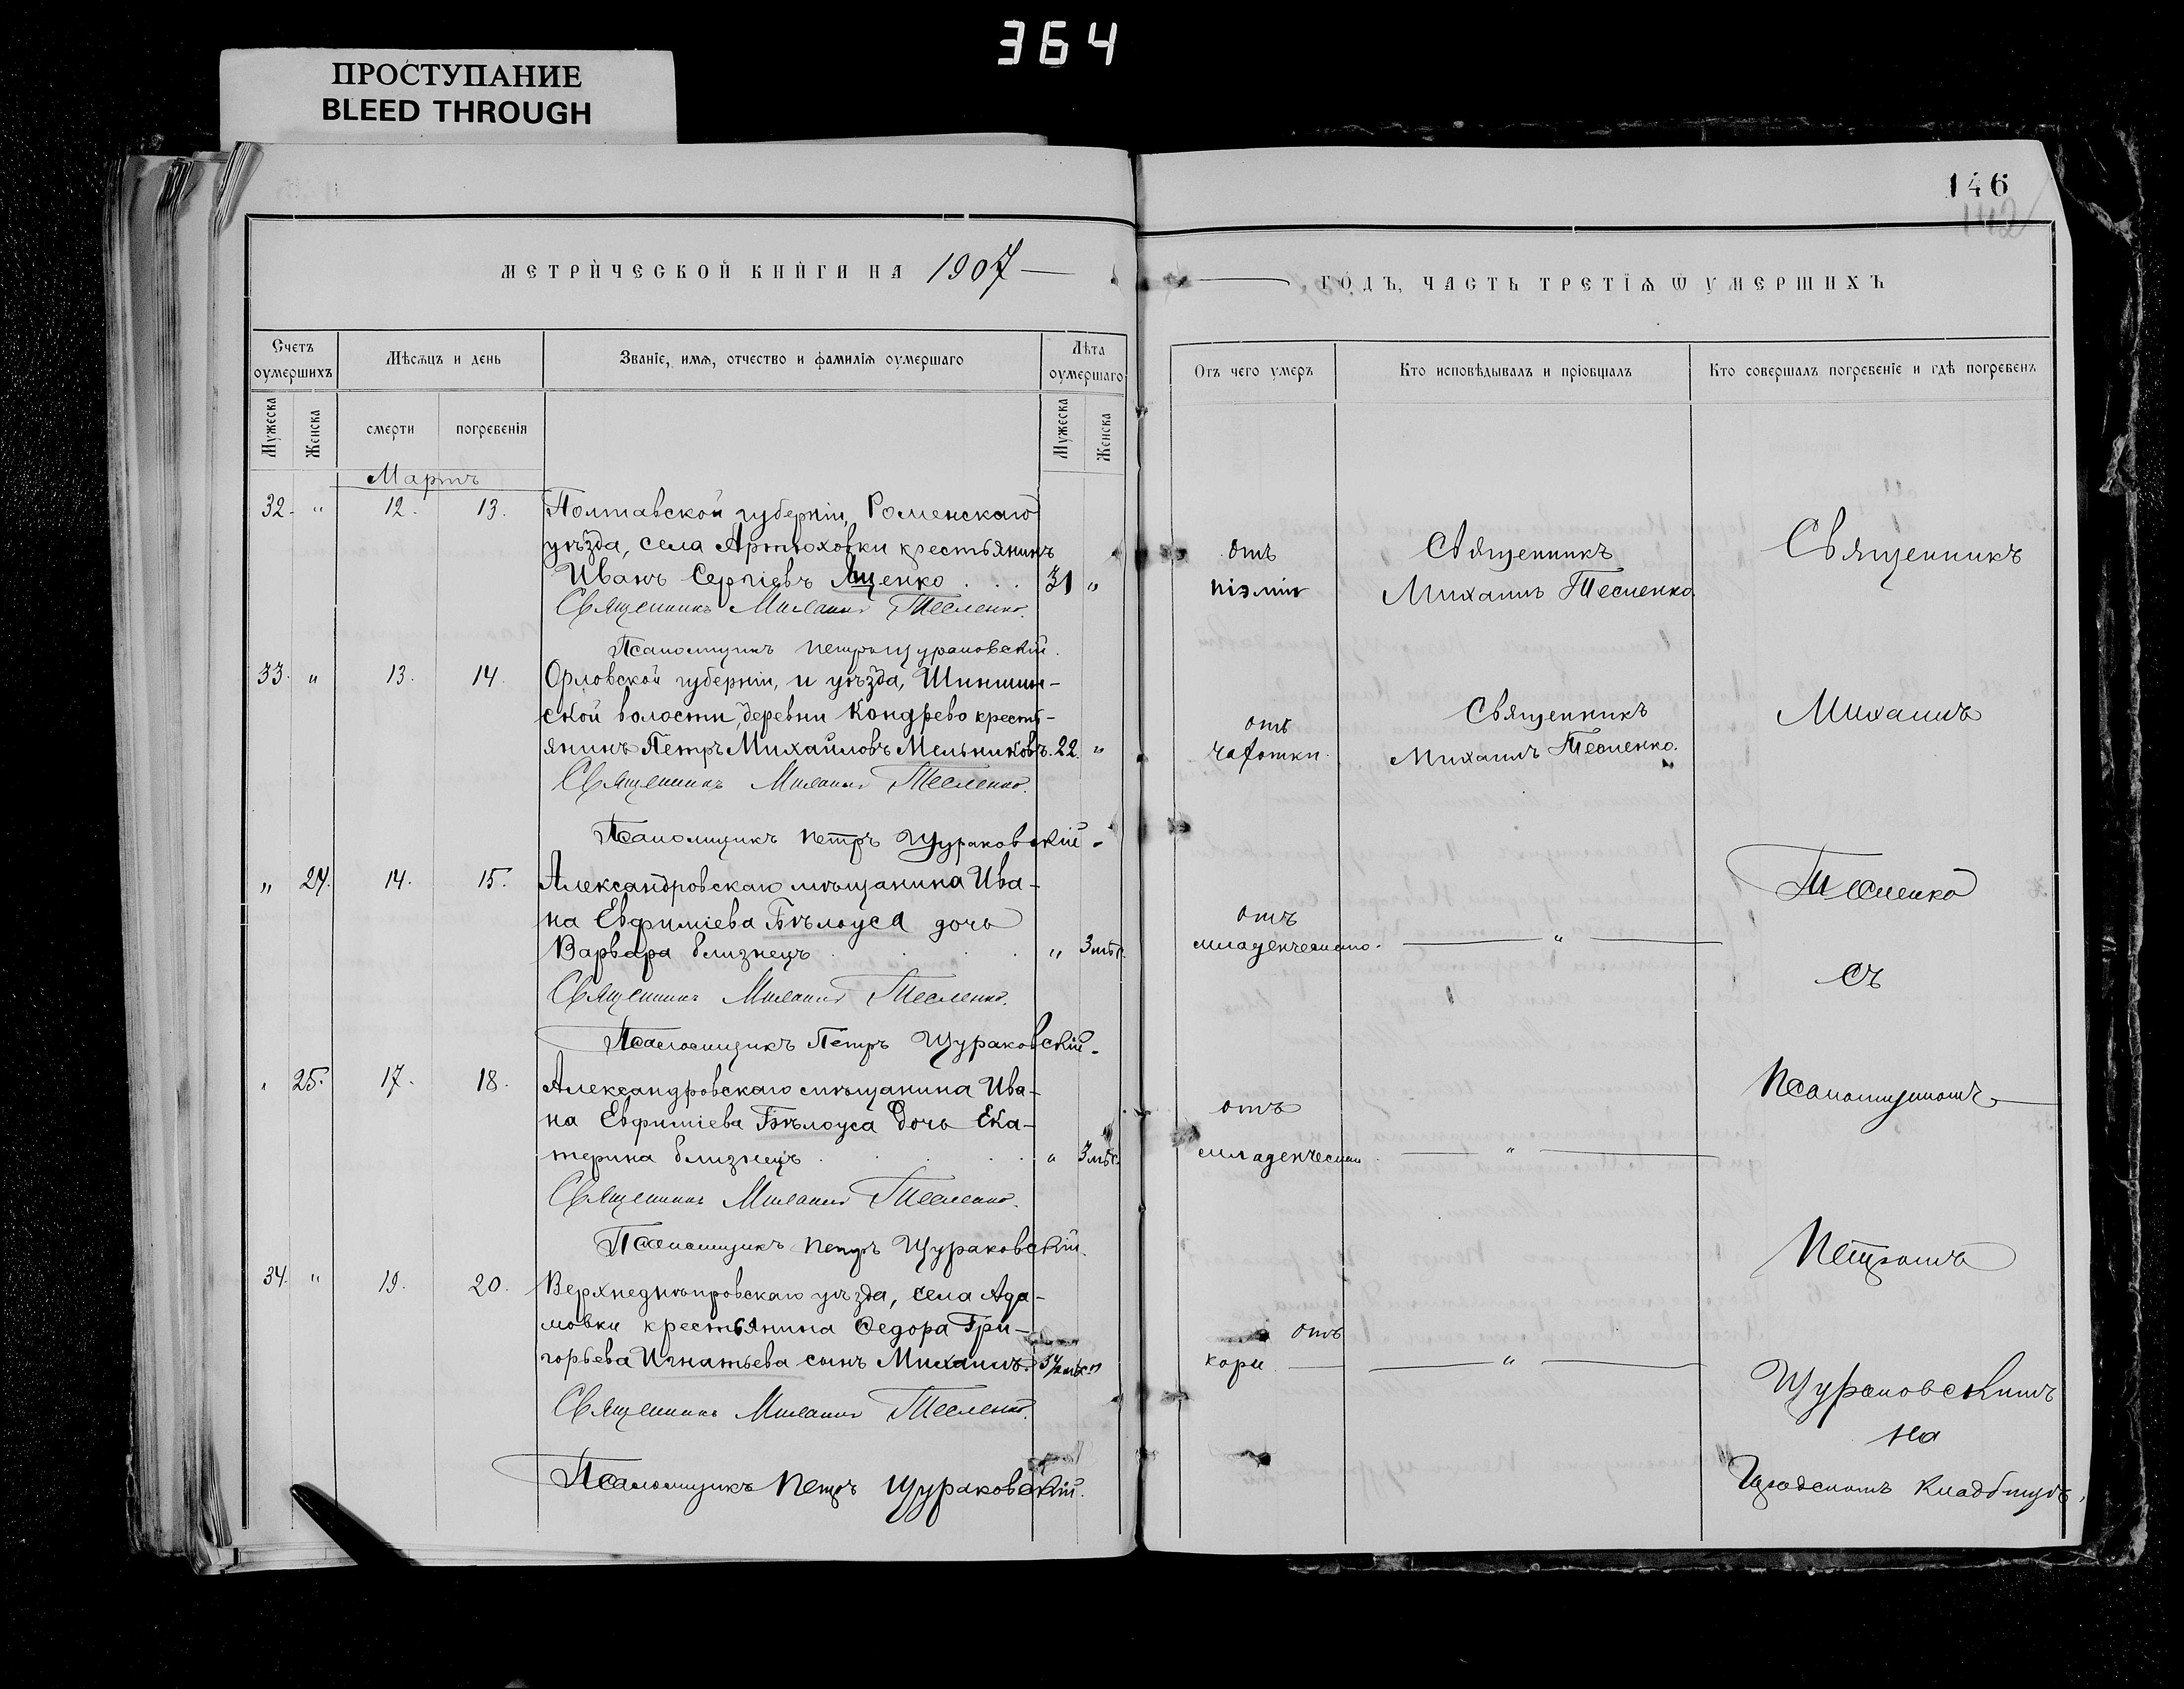 364
ПРОСТУПАНИЕ
BLEED THROUGH
146
142
МЕТРИЧЕСКОЙ КНИГИ НА 1907
ГОДЪ, ЧАСТЬ ТРЕТІѦ Ѿ УМЕРШИХЪ
Счетъ оумершихъ
Мѣсѧцъ и день
Званіе, имѧ, отчество и фамиліѧ оумершаго
Лѣта оумершаго
Отъ чего умеръ
Кто исповѣдывалъ и пріобщалъ
Кто совершалъ погребеніе и гдѣ погребенъ
Мужеска
Женска
смерти
погребенія
Мужеска
Женска
Мартъ
32. " 12. 13. Полтавской губерніи, Роменскаго
уѣзда, села Артюховки крестьянинъ
Иванъ Сергіевъ Яценко . . . 31 "
Священникъ Михаилъ Тесленко.
Псаломщикъ Петръ Щураковскій.
отъ
Священникъ
Михаилъ Тесленко.
Священникъ
33. " 13. 14. Орловской губерніи, и уѣзда,
ской волости, деревни Кондрево кресть-
янинъ Петръ Михайловъ Мельниковъ. 22. "
Священникъ Михаилъ Тесленко.
Псаломщикъ Петръ Щураковскій.
отъ
чахотки.
Священникъ
Михаилъ Тесленко.
Михаилъ
" 24. 14. 15. Александровскаго мѣщанина Ива-
на Евфиміева Бѣлоуса дочь
Варвара близнецъ . . . . " 3 мѣс.
Священникъ Михаилъ Тесленко.
Псаломщикъ Петръ Щураковскій.
отъ
младенческаго.
"
Тесленко
съ
" 25. 17. 18. Александровскаго мѣщанина Ива-
на Евфиміева Бѣлоуса дочь Ека-
терина близнецъ . . . . " 3 мѣс.
Священникъ Михаилъ Тесленко.
Псаломщикъ Петръ Щураковскій.
отъ
"
Псаломщикомъ
Петромъ
34. " 19. 20. Верхнеднѣпровскаго уѣзда, села Ада-
мовки крестьянина Ѳедора Гри-
горьева Игнатьева сынъ Михаилъ.
Священникъ Михаилъ Тесленко.
Псаломщикъ Петръ Щураковскій.
отъ
кори
"
Щураковскимъ
на
Градскомъ кладбищѣ.